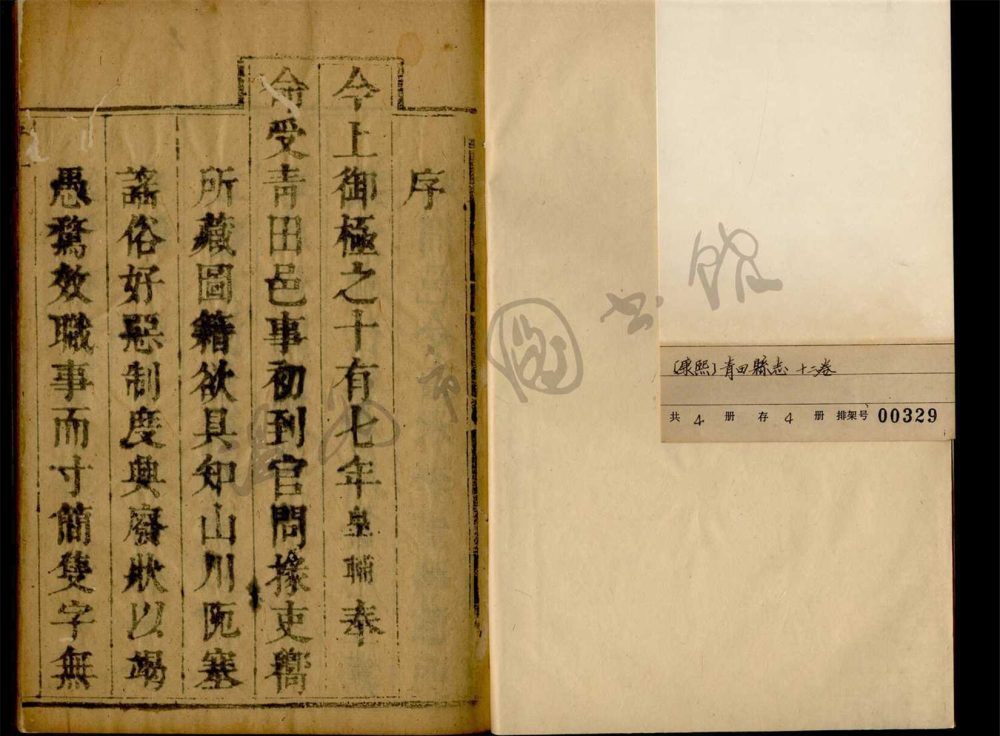 序
今上御極之十有七年皇輔奉
命受青田邑事初到官問掾吏嚮
所藏圖籍欲具知山川阨塞
謠俗好惡制度典廢狀以竭
愚鶩效職事而寸簡隻字無
[康熙]青田縣志 十二卷
共 4 册 存 4 册 排架号 00329
温州市图书馆